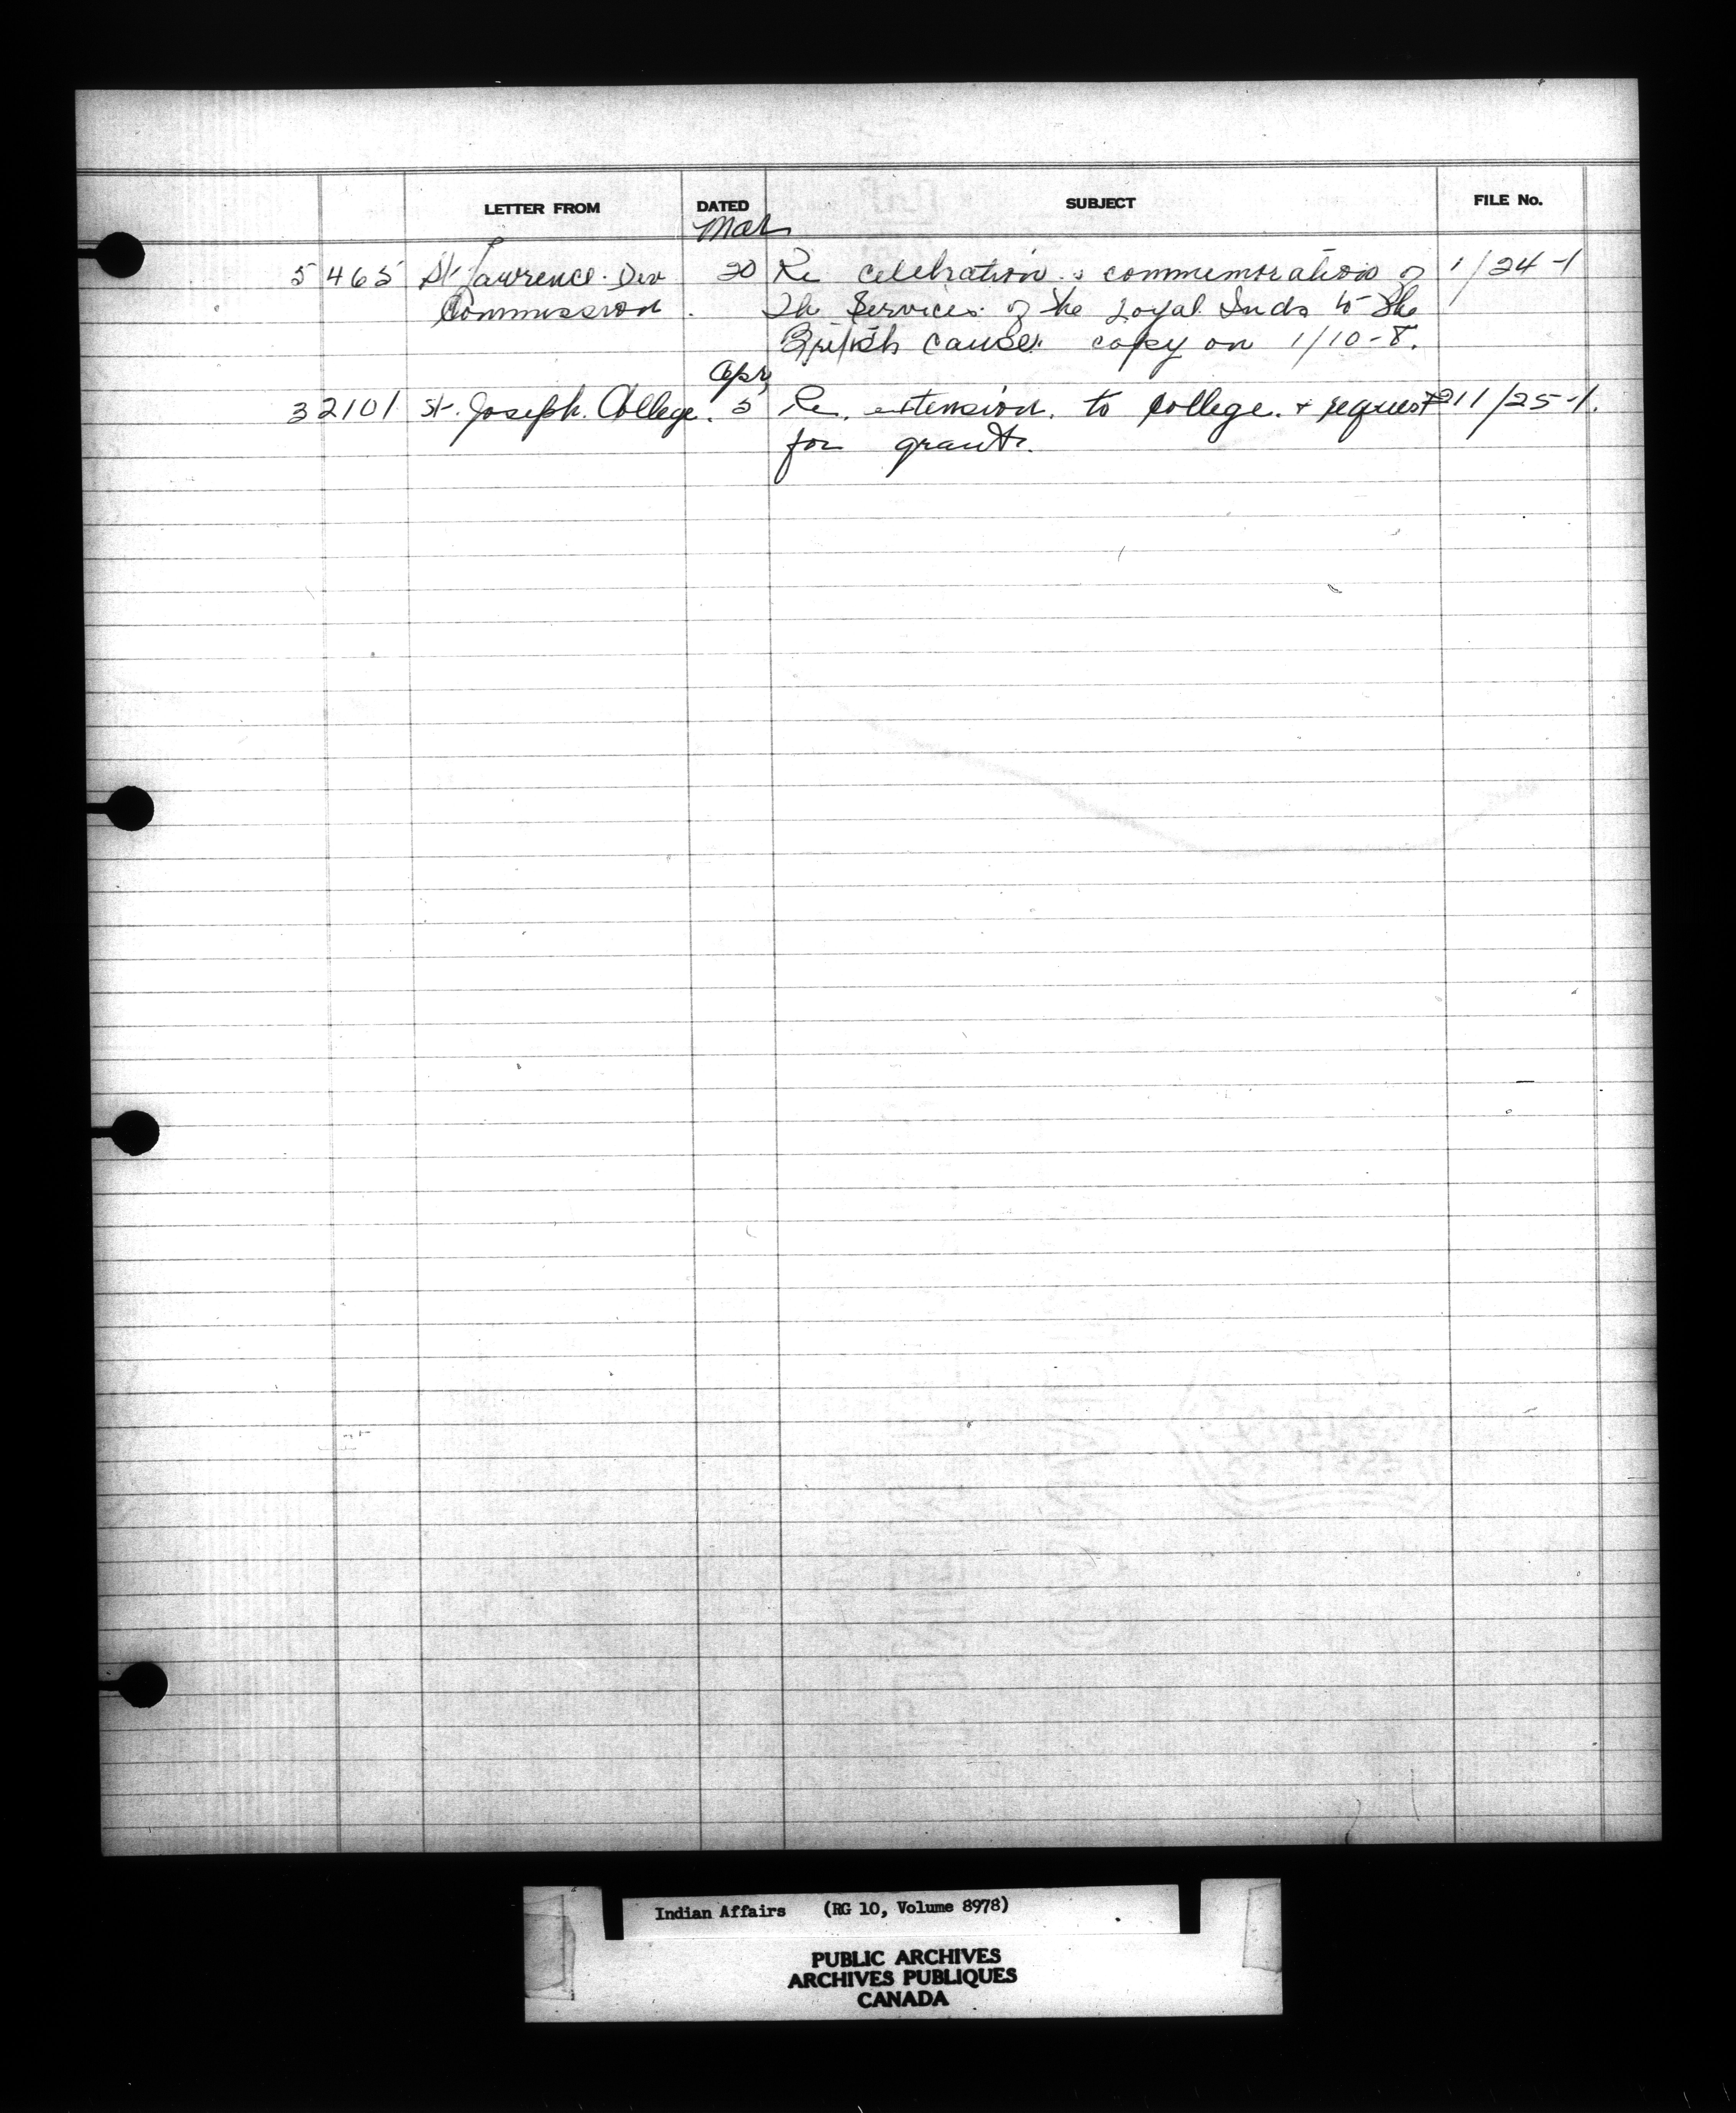 LETTER FROM DATED SUBJECT FILE No.
Mar
5 465 St Lawrence Dev 20 Re celebration & commemoration of 1/24-1
Commission. The Services of the Loyal Inds to the
British cause. copy on 1/10-8.
Apr
3 2101 St. Joseph. College. 5 Re. extension. to College. & request 211/25-1.
for grant.
Indian Affairs (RG 10, Volume 8978)
PUBLIC ARCHIVES
ARCHIVES PUBLIQUES
CANADA